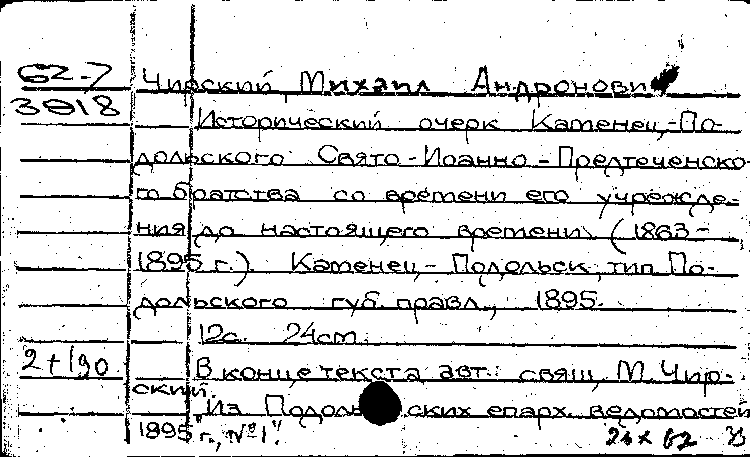 62-7 Чирский, Михаил Андронович
3018 Исторический очерк Каменец-По-
дольского Свято-Иоанно-Предтеченско-
го братства со времени его учрежде-
ния до настоящего времени (1863-
1895 г.). Каменец-Подольск, тип. По-
дольского губ. правл., 1895.
12с. 24см.
2+190. В конце текста авт.: свящ. М. Чир-
ский.
"Из Подольских епарх. ведомостей
1895 г., №1".